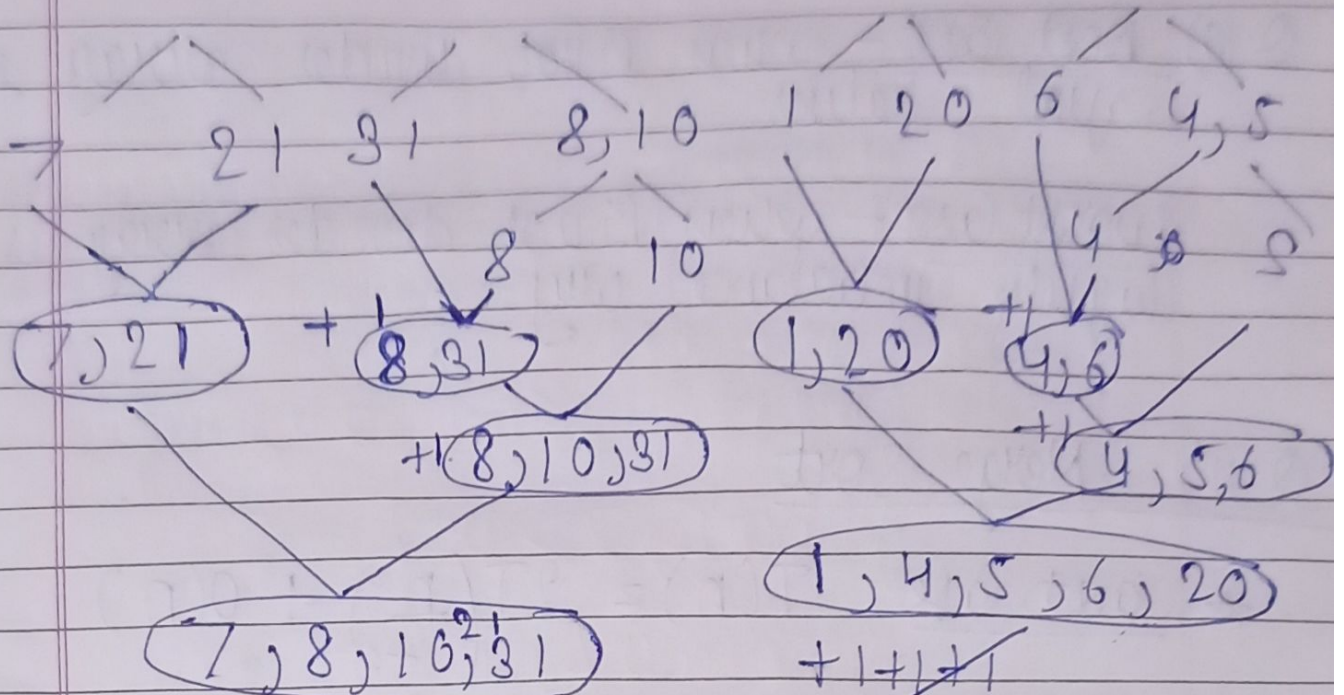 7 21 31 8,10 1 20 6 4,5
8 10 4 5
7,21 +1 8,31 1,20 +1 4,6
+1 8,10,31 +1 4,5,6
1,4,5,6,20
7,8,10,21,31 +1+1+1